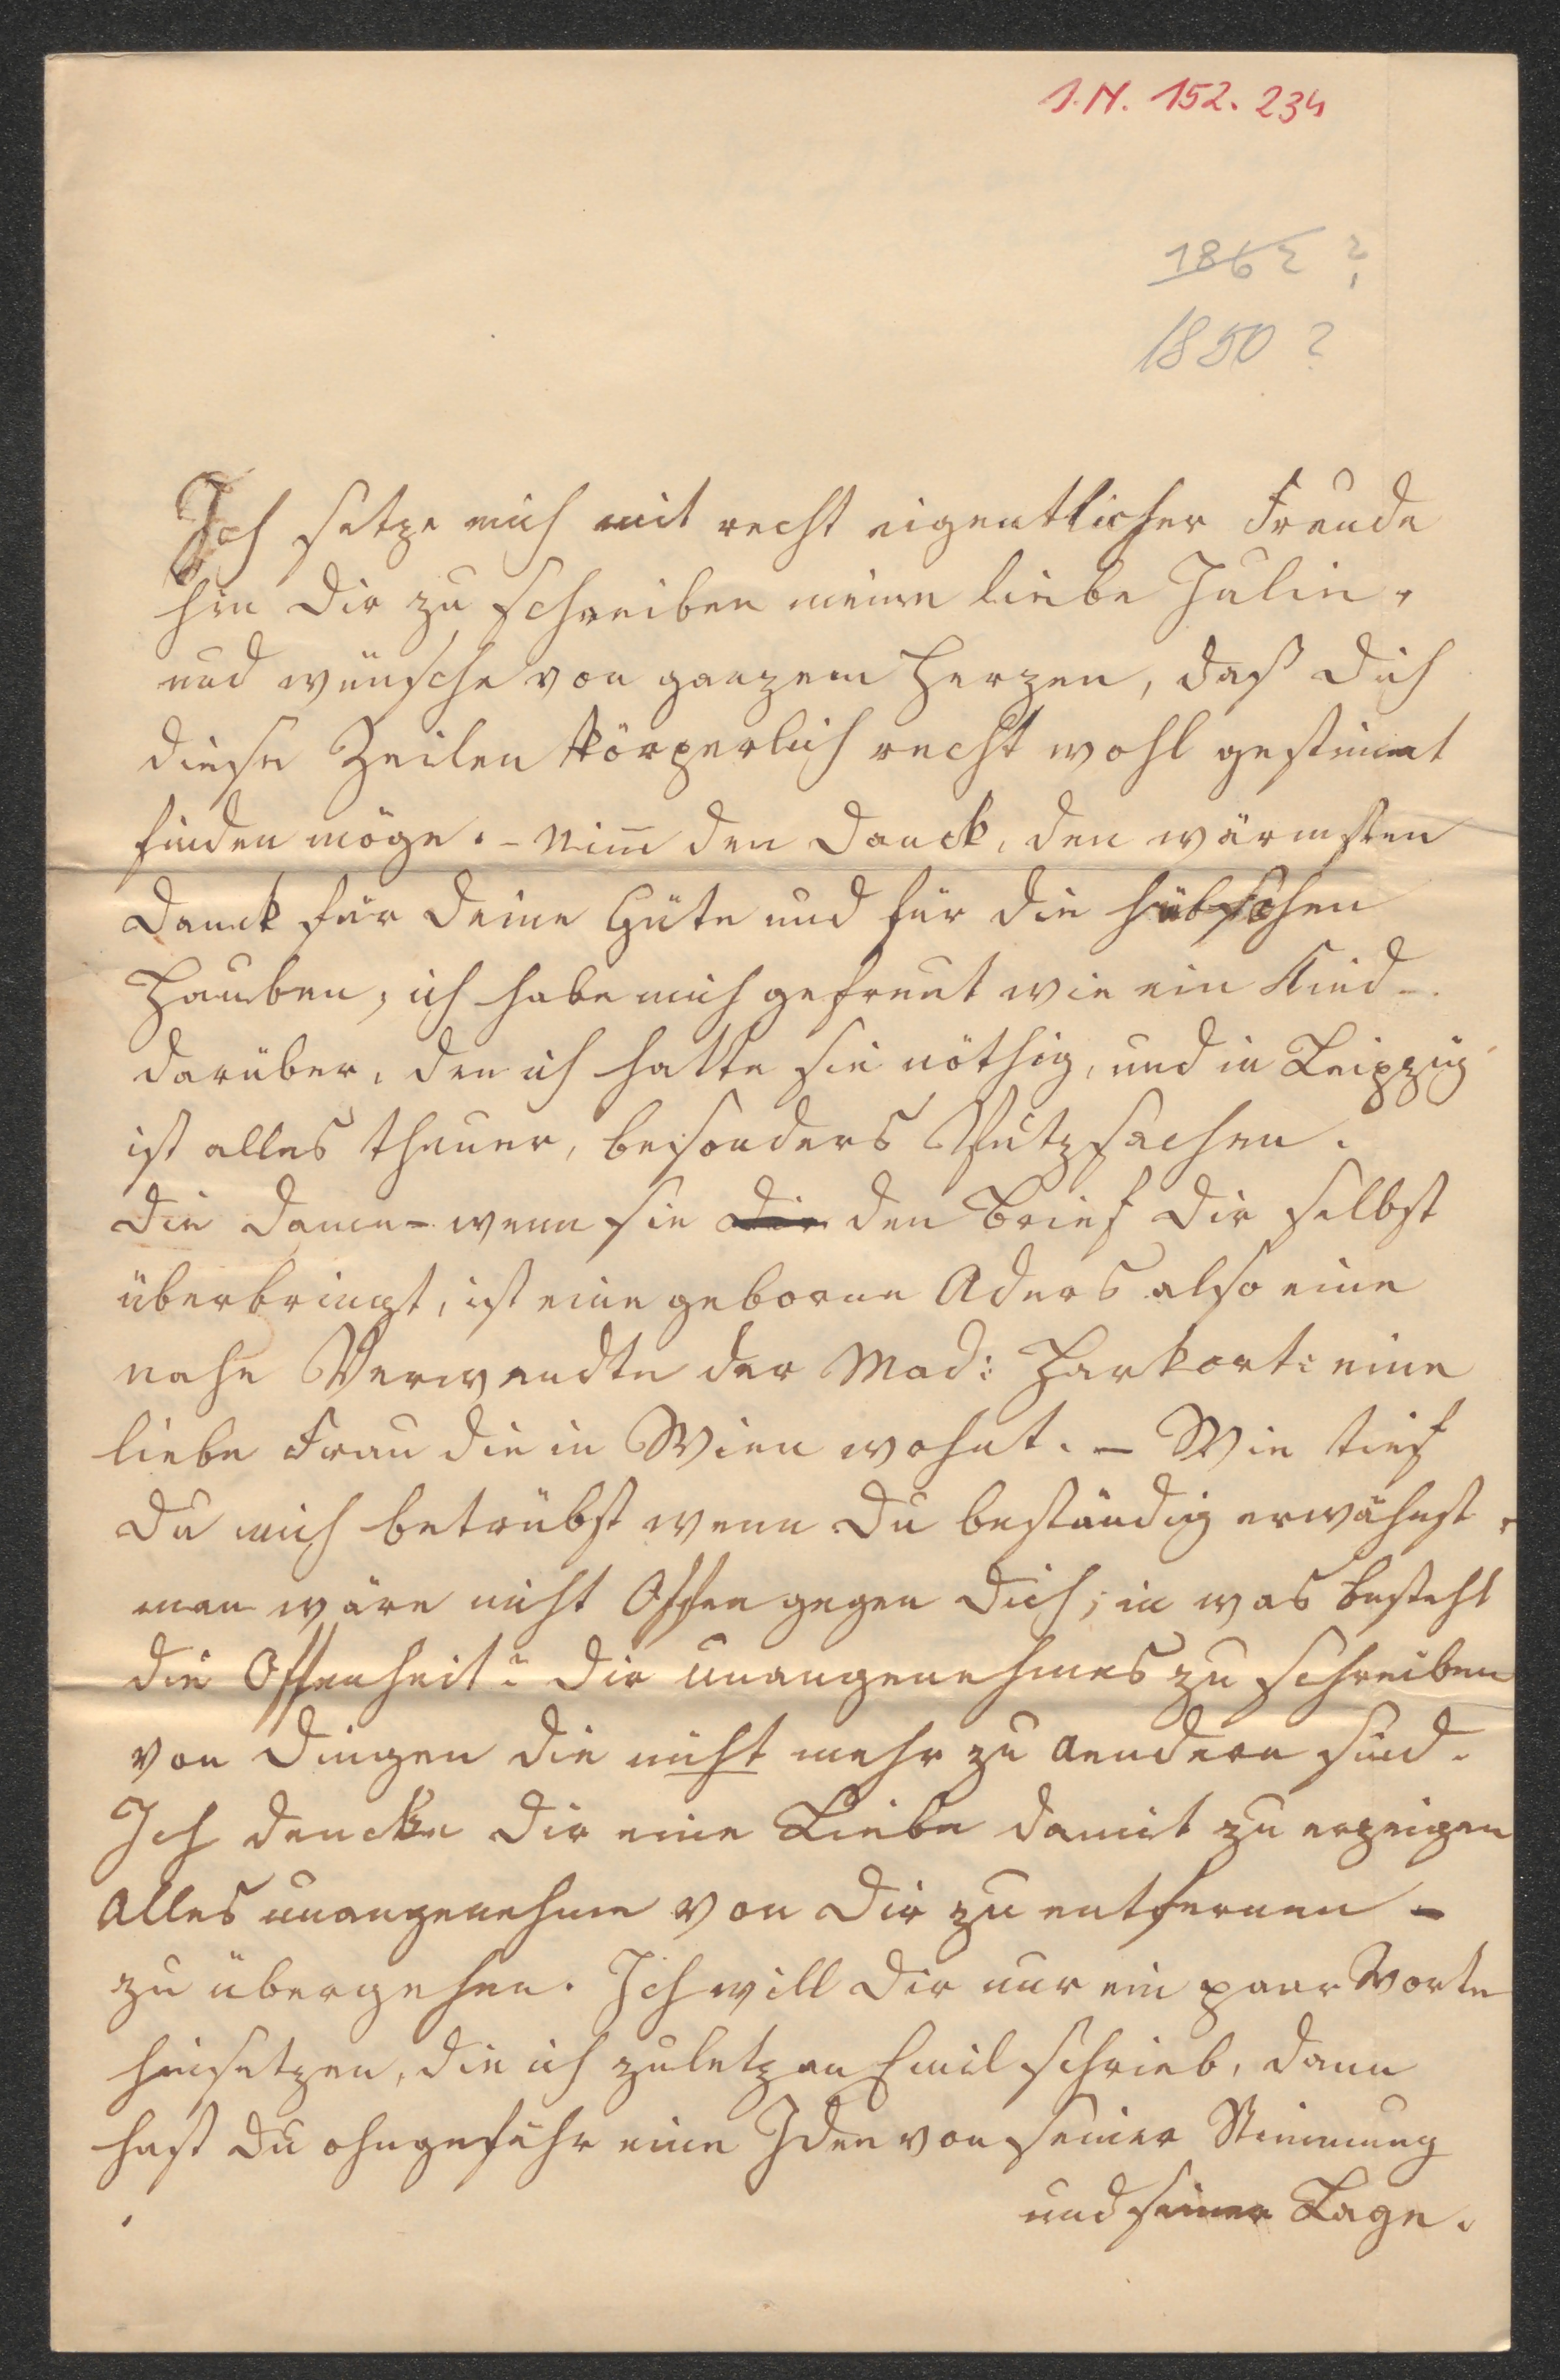 I.N. 152.234
1862 ?
1850 ?
Ich setze mich mit recht eigentlicher Freude
hin Dir zu schreiben meine liebe Julie,
und wünsche von ganzem Herzen, daß Dich
diese Zeilen körperlich recht wohl gestimmt
finden möge. – Nim̅ den Danck, den wärmsten
Danck für Deine Güte und für die hübschen
Hauben, ich habe mich gefreut wie ein Kind
darüber, den ich hatte sie nöthig, und in Leipzig
ist alles theuer, besonders Putzsachen.
Die Dame – wenn sie Dir den Brief Dir selbst
überbringt, ist eine geborne Aders also eine
nahe Verwandte der Mad: Harkort: eine
liebe Frau die in Wien wohnt. – Wie tief
Du mich betrübst wenn Du beständig erwähnst,
man wäre nicht Offen gegen Dich; in was besteht
die Offenheit? Dir unangenehmes zu schreiben
von Dingen die nicht mehr zu aendern sind.
Ich dencke Dir eine Liebe damit zu erzeigen
Alles unangenehme von Dir zu entfernen –
zu übergehen. Ich will Dir nur ein paar Worte
hinsetzen, die ich zuletz an Emil schrieb, dann
hast Du ohngefähr eine Idee von seiner Stimmung
und seiner Lage.